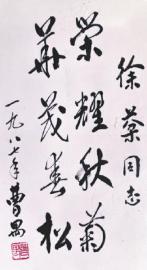 徐棻同志
榮耀秋菊
華茂春松
一九八七年 曹禺